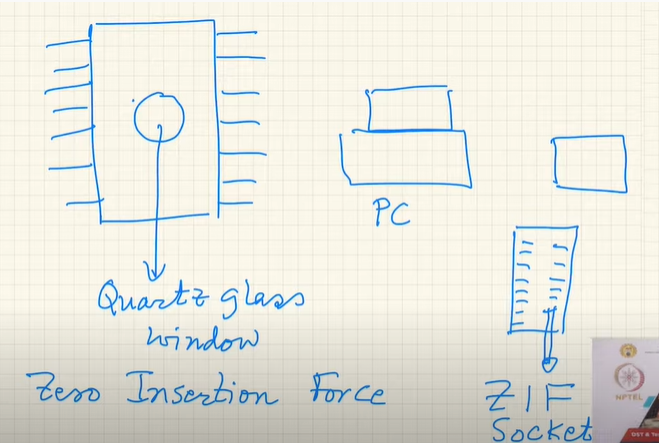 PC
Quartz glass
window
Zero Insertion Force
ZIF
Socket
NPTEL